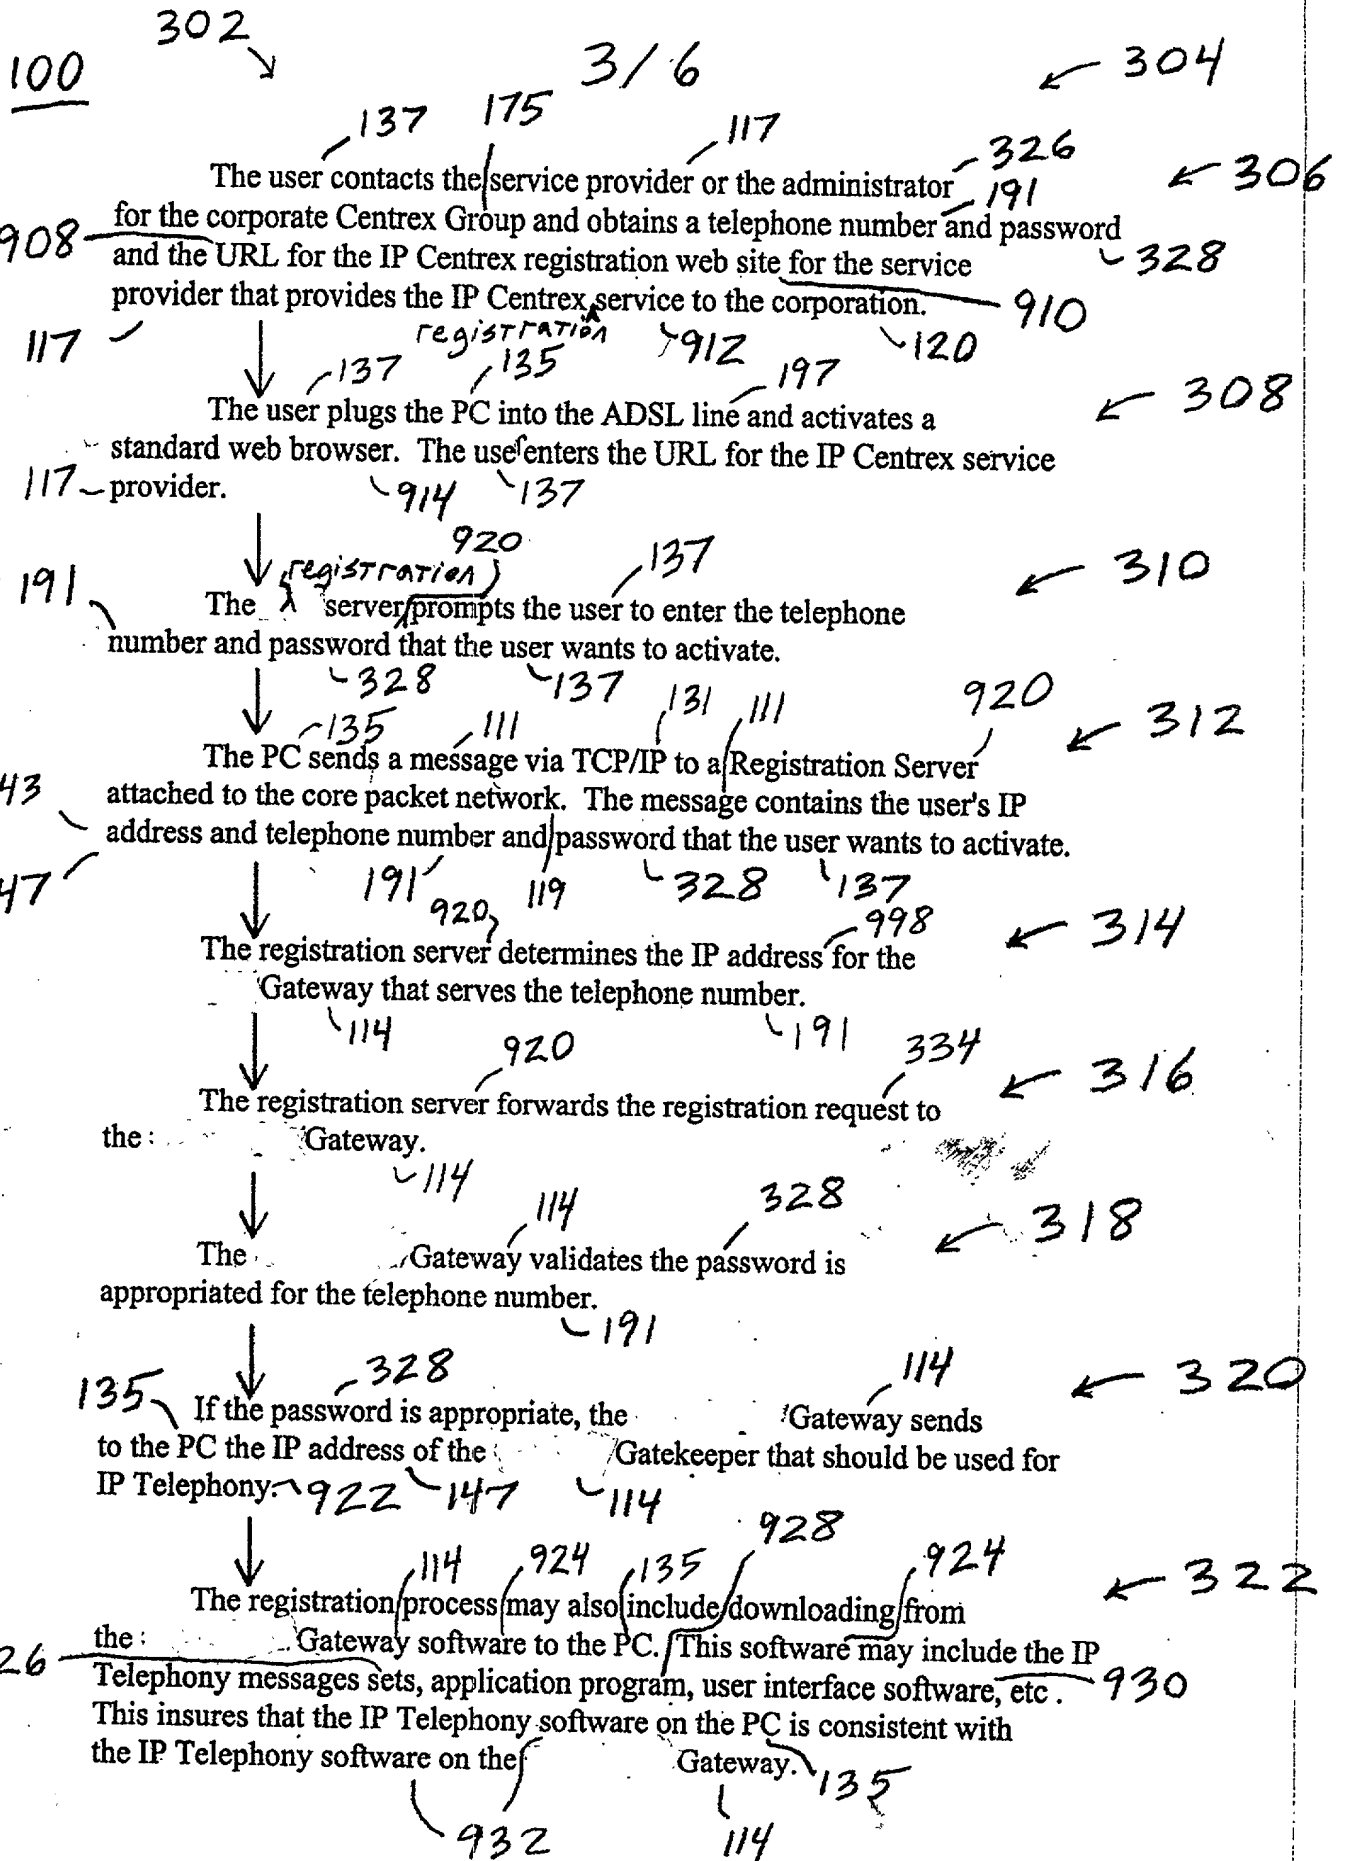 302
100
3/6
304
137 175 117
326
The user contacts the service provider or the administrator
306
191
for the corporate Centrex Group and obtains a telephone number and password
908
and the URL for the IP Centrex registration web site for the service
328
provider that provides the IP Centrex service to the corporation.
910
registration
117 912 120
137 135 197
308
The user plugs the PC into the ADSL line and activates a
standard web browser. The user enters the URL for the IP Centrex service
117 provider.
914 137
920
registration 137
310
191
The server prompts the user to enter the telephone
number and password that the user wants to activate.
328 137 131 111 920
135 111
312
The PC sends a message via TCP/IP to a Registration Server
43
attached to the core packet network. The message contains the user's IP
address and telephone number and password that the user wants to activate.
47
191 119 328 137
920 998
314
The registration server determines the IP address for the
Gateway that serves the telephone number.
114 191
920 334
316
The registration server forwards the registration request to
the : Gateway.
114
114 328
318
The Gateway validates the password is
appropriated for the telephone number.
191
328 114
135
320
If the password is appropriate, the Gateway sends
to the PC the IP address of the Gatekeeper that should be used for
IP Telephony. 922 147 114
928
114 924 135 924
322
The registration process may also include downloading from
the : Gateway software to the PC. This software may include the IP
26
Telephony messages sets, application program, user interface software, etc . 930
This insures that the IP Telephony software on the PC is consistent with
the IP Telephony software on the Gateway. 135
932 114